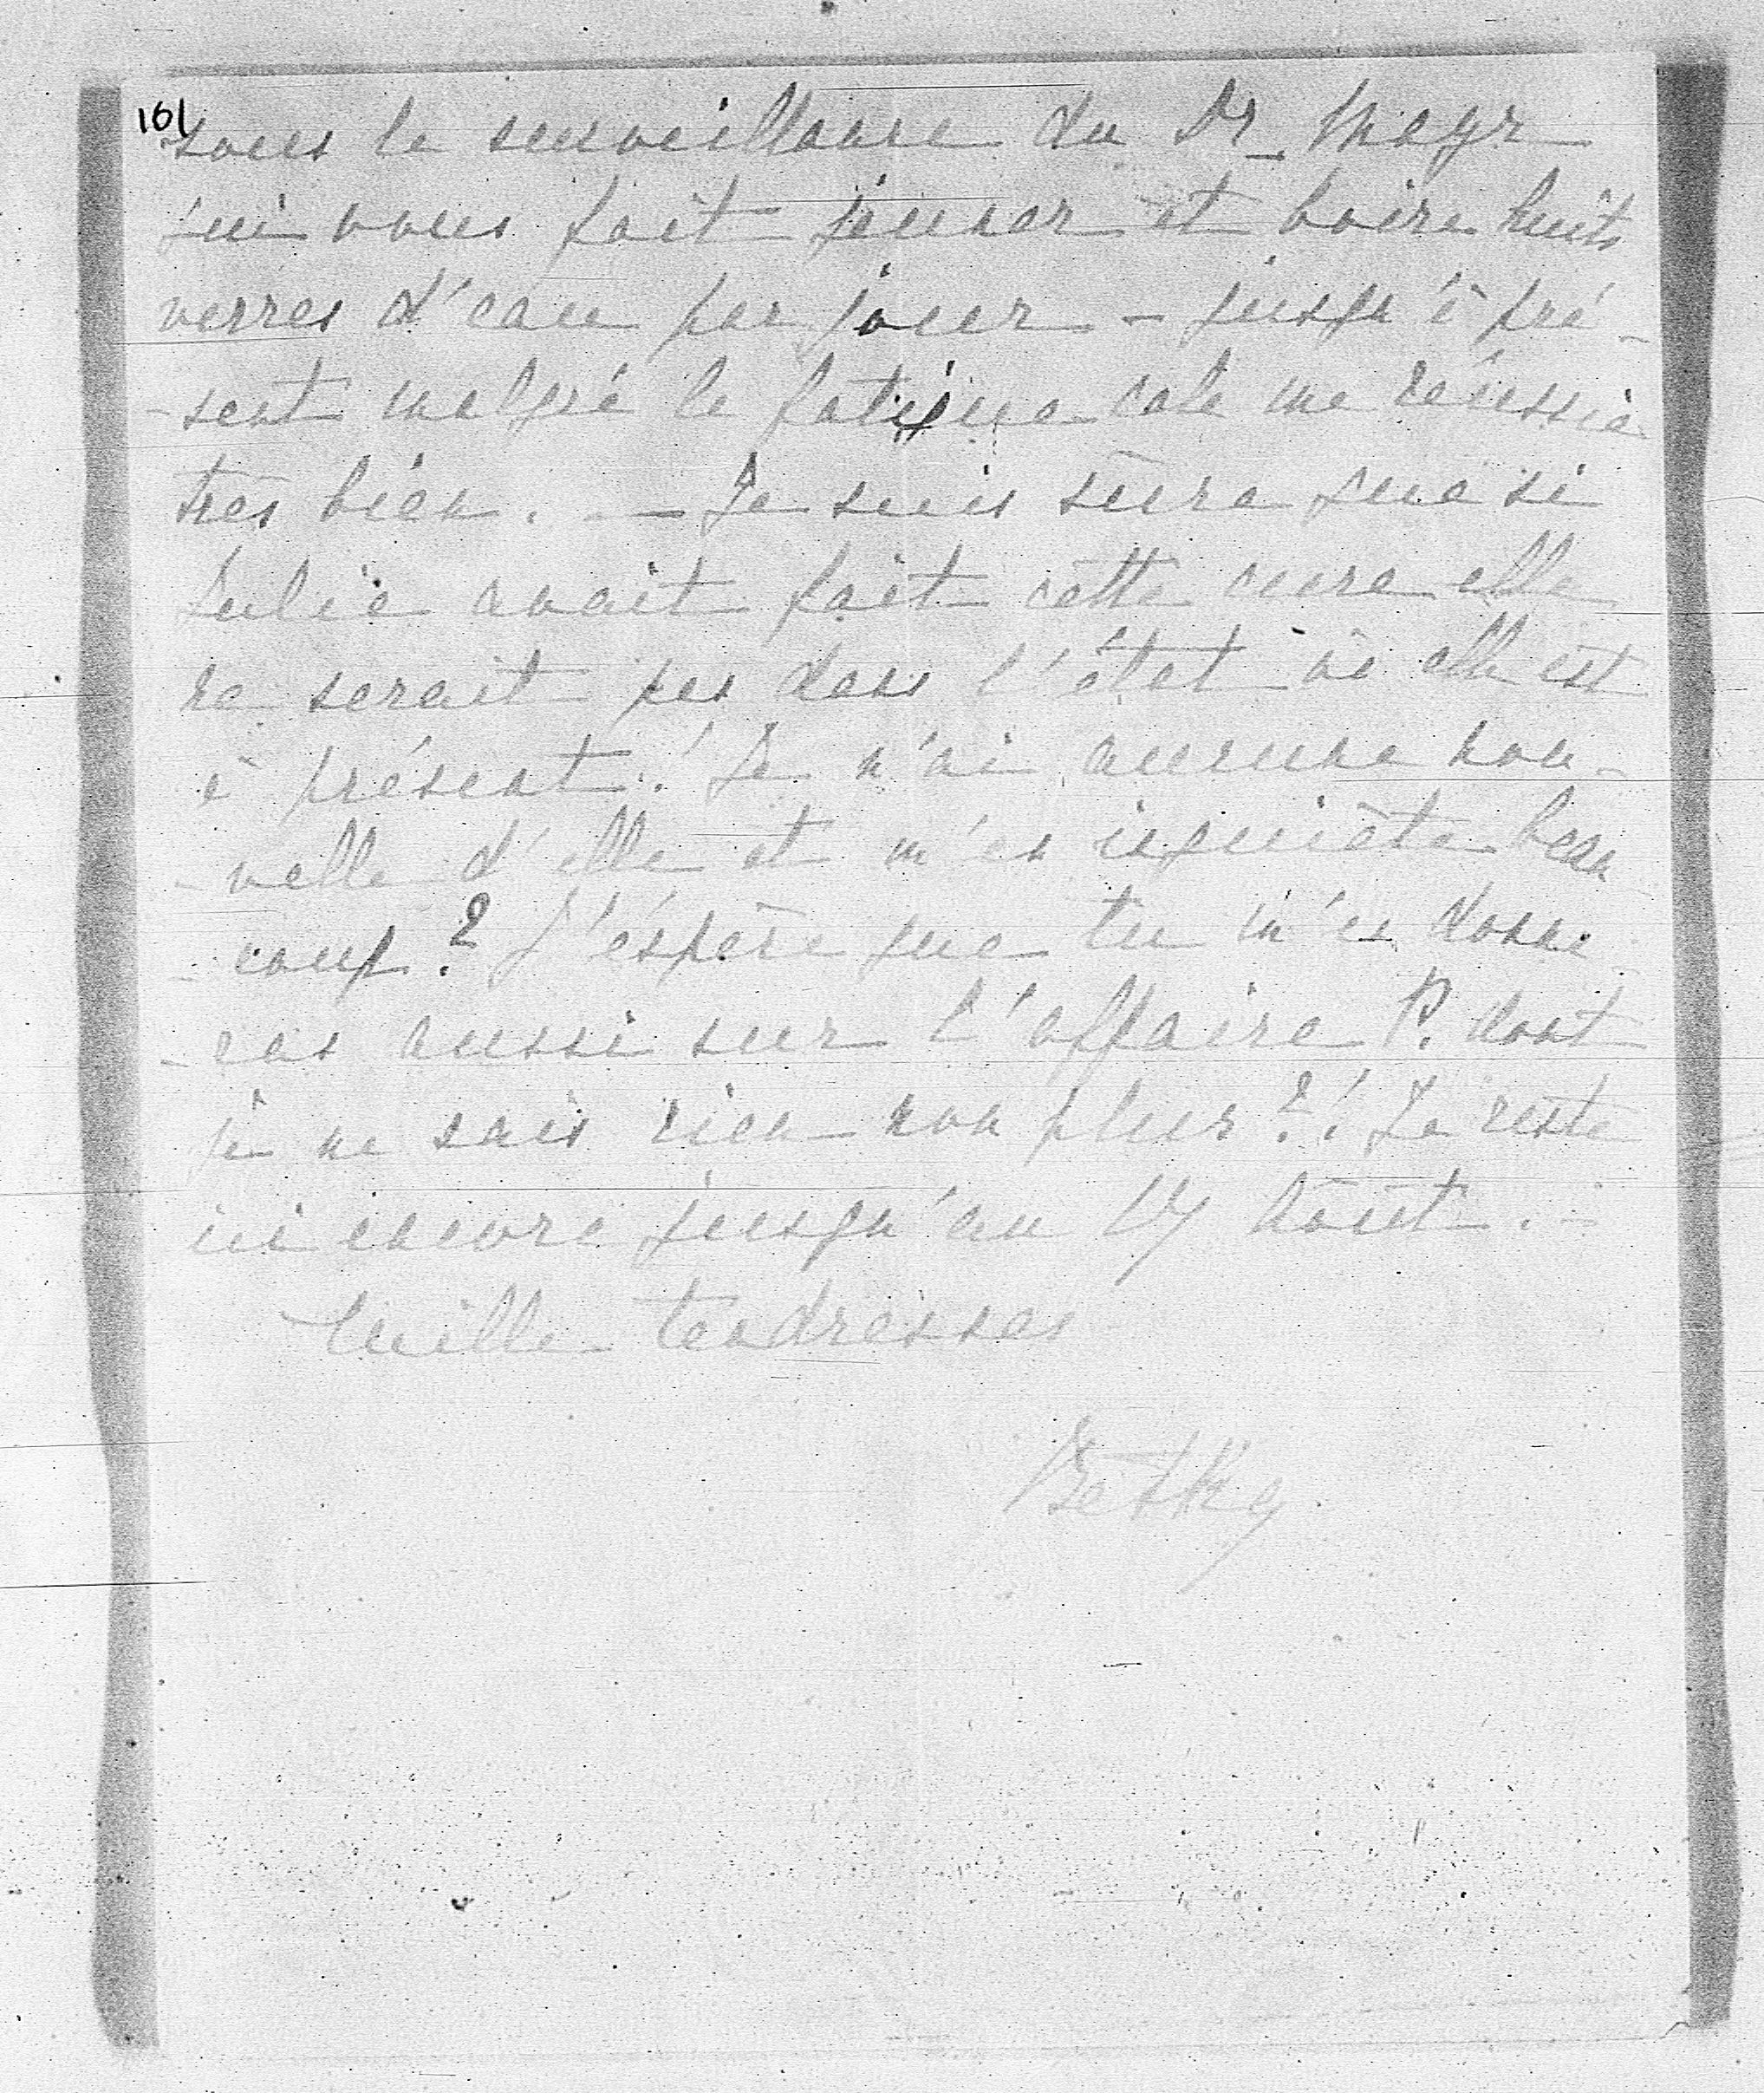 161
sous la surveillance du Dr Mayr
qui vous fait jeuner et boire huit
verres d'eau par jour - jusqu'à pré-
-sent malgré la fatigue cela me réussie
très bien. — Je suis sûre que si
Julie avait fait cette cure elle
ne serait pas dans l'état où elle est
à présent! Je n'ai aucune nou-
-velle d'elle et m'en inquiète beau
-coup? J'éspère que tu m'en donne
-ras aussi sur l'affaire P. dont
je ne sais rien non plus?! Je reste
ici encore jusqu'au 17 Août. -
Mille tendresses
Betka